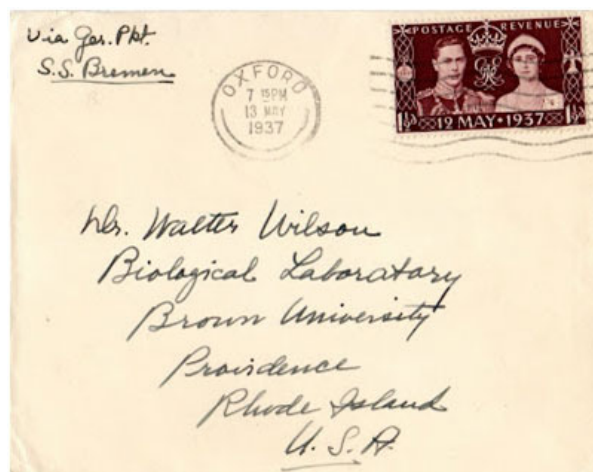 Via Ger. Pkt.
S.S. Bremen
OXFORD
7 15 PM
13 MAY
1937
POSTAGE REVENUE
1½d 12 MAY • 1937 1½d
Dr. Walter Wilson
Biological Laboratory
Brown University
Providence
Rhode Island
U.S.A.